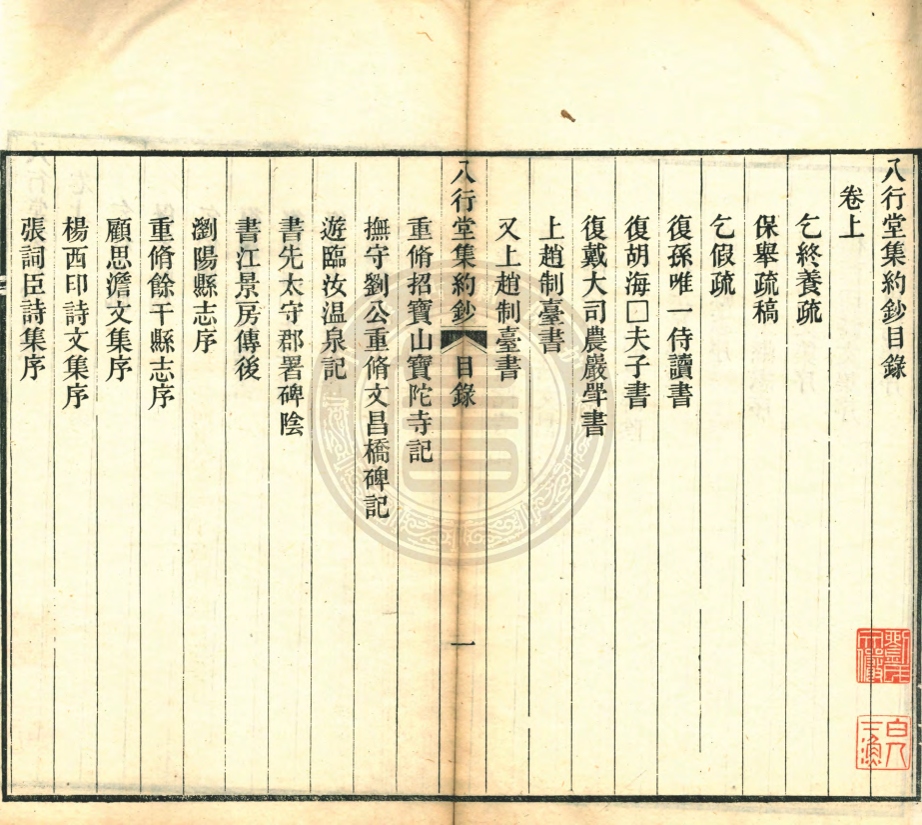 八行堂集約鈔目錄
卷上
乞終養疏
保舉疏稿
乞假疏
復孫唯一侍讀書
復胡海□夫子書
復戴大司農巖犖書
上趙制臺書
又上趙制臺書
八行堂集約鈔 目錄 一
重脩招寶山寶陀寺記
撫守劉公重脩文昌橋碑記
遊臨汝溫泉記
書先太守郡署碑陰
書江景房傳後
瀏陽縣志序
重脩餘干縣志序
顧思澹文集序
楊西印詩文集序
張詞臣詩集序